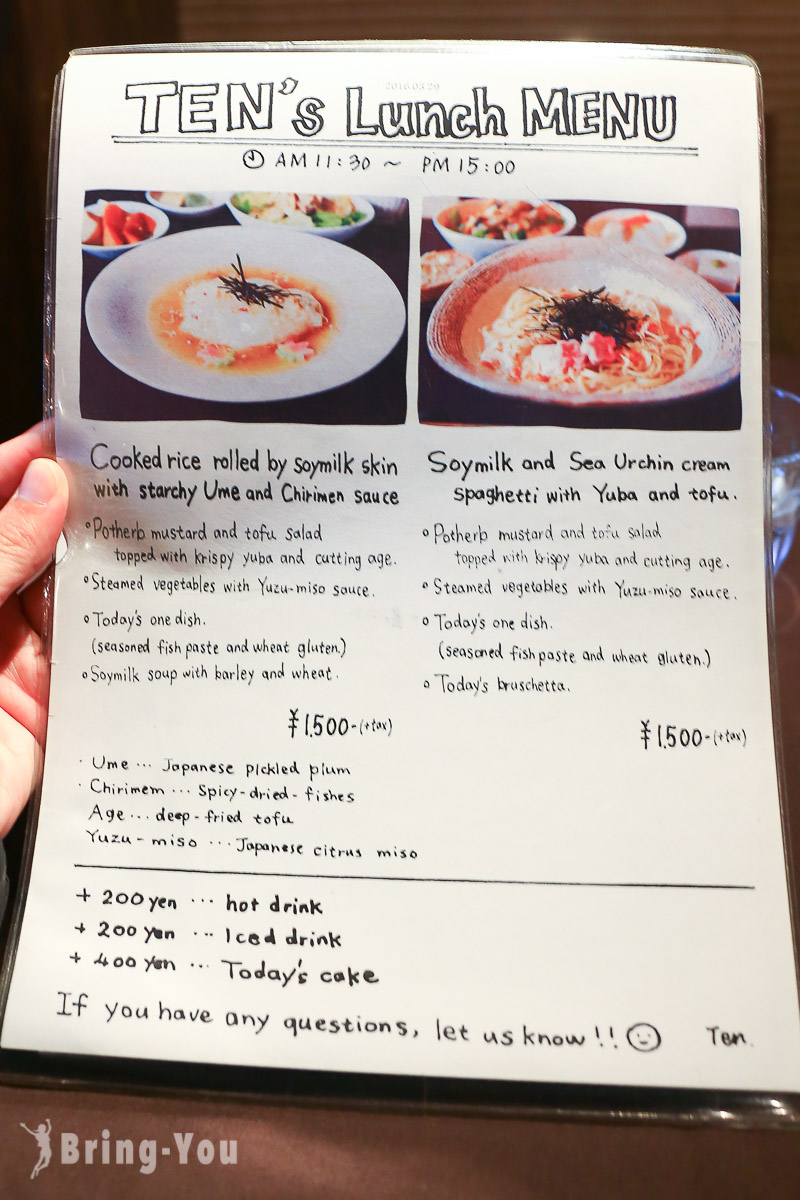 2016.03.29
TEN's Lunch MENU
AM 11:30 ~ PM 15:00
Cooked rice rolled by soymilk skin
with starchy Ume and Chirimen sauce
°Potherb mustard and tofu salad
topped with krispy yuba and cutting age.
°Steamed vegetables with Yuzu-miso sauce.
°Today's one dish.
(seasoned fish paste and wheat gluten.)
°Soymilk soup with barley and wheat.
¥1,500-(+tax)
Soymilk and Sea Urchin cream
spaghetti with Yuba and tofu.
°Potherb mustard and tofu salad
topped with krispy yuba and cutting age.
°Steamed vegetables with Yuzu-miso sauce.
°Today's one dish.
(seasoned fish paste and wheat gluten.)
°Today's bruschetta.
¥1,500-(+tax)
· Ume ··· Japanese pickled plum
· Chirimem ··· Spicy-dried-fishes
Age ··· deep-fried tofu
Yuzu-miso ··· Japanese citrus miso
+ 200 yen ··· hot drink
+ 200 yen ··· Iced drink
+ 400 yen ··· Today's cake
If you have any questions, let us know!! Ten.
Bring-You